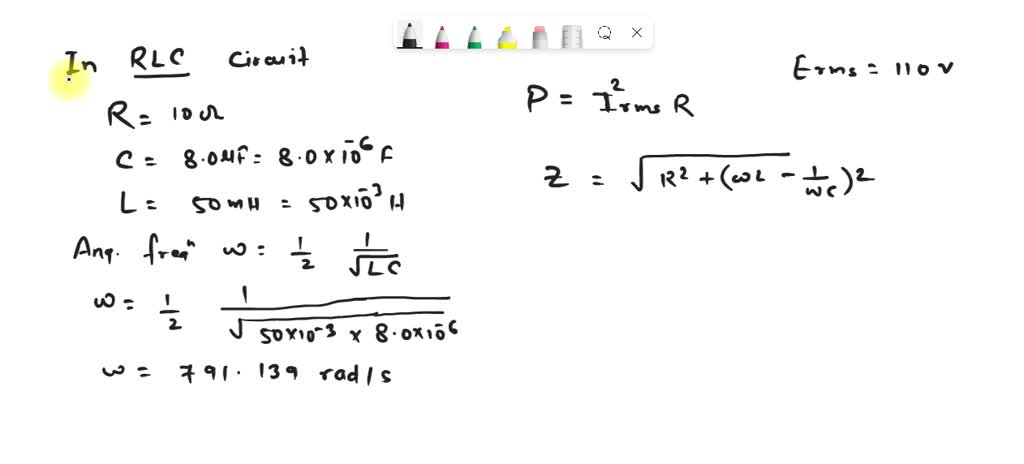 In RLC Circuit
R = 10 Ω
C = 8.0 μF = 8.0 × 10⁻⁶ F
L = 50 mH = 50 × 10⁻³ H
Ang. freqⁿ ω = 1/2 1/√LC
ω = 1/2 1/√(50×10⁻³ × 8.0×10⁻⁶)
ω = 791.139 rad/s
Erms = 110 V
P = I²rms R
Z = √R² + (ωL - 1/ωC)²